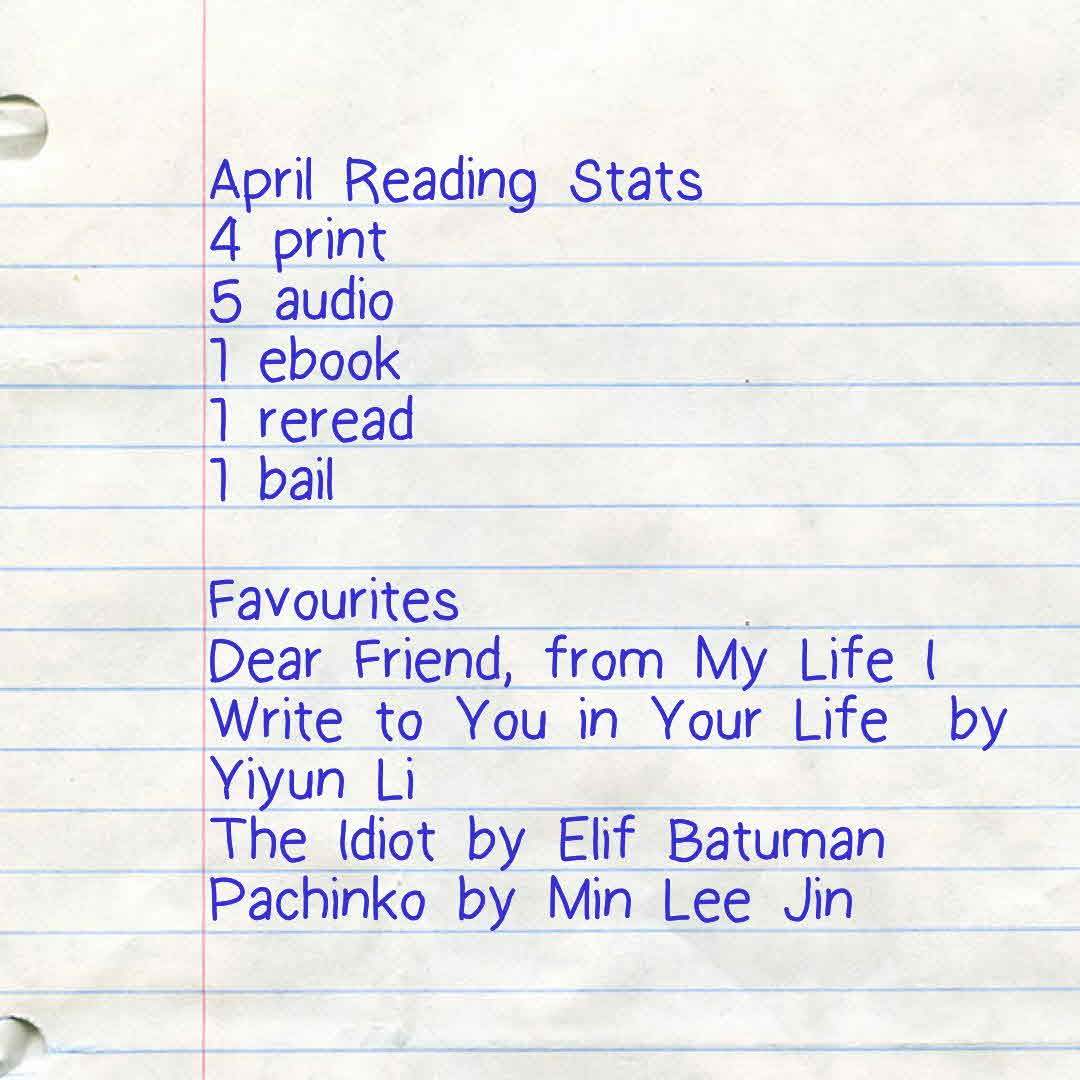 April Reading Stats
4 print
5 audio
1 ebook
1 reread
1 bail
Favourites
Dear Friend, from My Life I
Write to You in Your Life by
Yiyun Li
The Idiot by Elif Batuman
Pachinko by Min Lee Jin